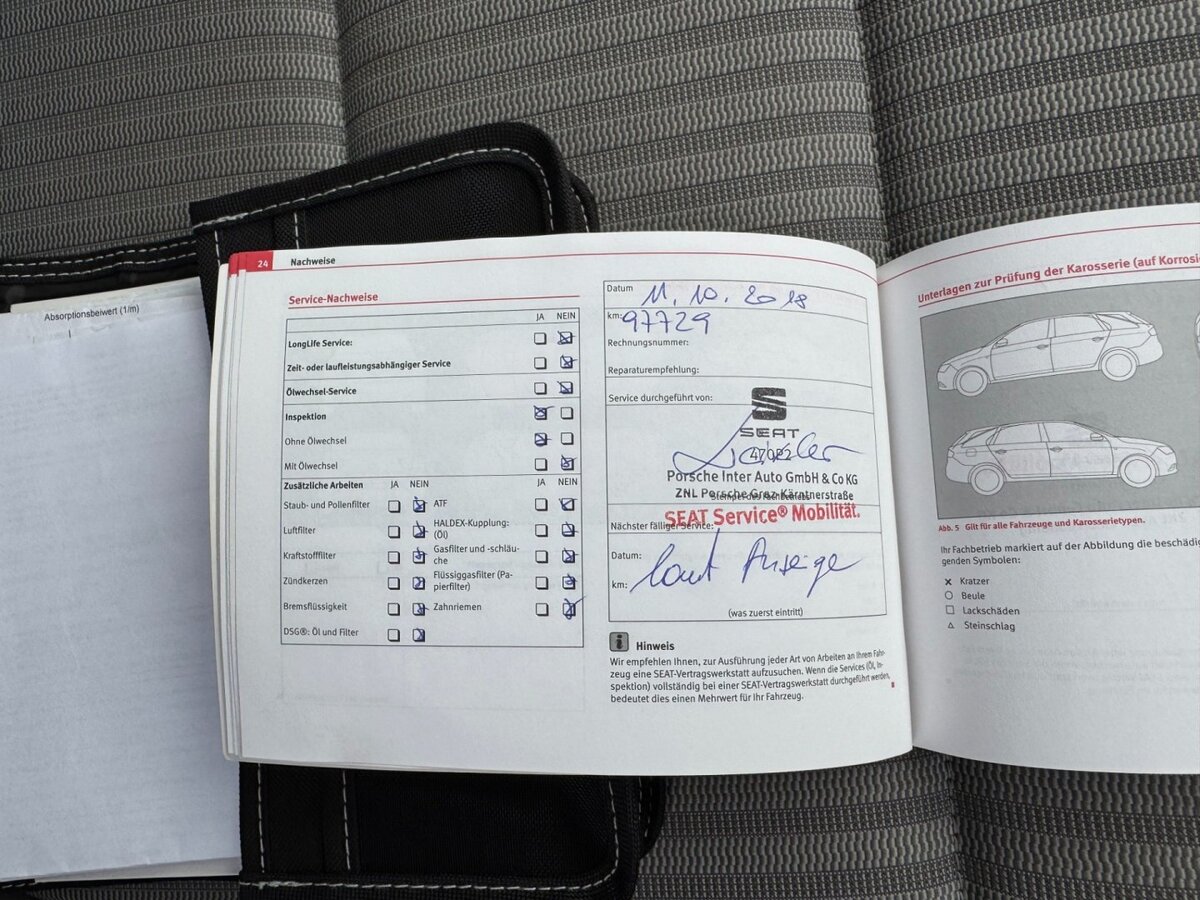 Absorptionsbeiwert (1/m)
24 Nachweise
Service-Nachweise
JA NEIN
LongLife Service:
Zeit- oder laufleistungsabhängiger Service
Ölwechsel-Service
Inspektion
Ohne Ölwechsel
Mit Ölwechsel
Zusätzliche Arbeiten JA NEIN JA NEIN
Staub- und Pollenfilter ATF
Luftfilter HALDEX-Kupplung: (Öl)
Kraftstofffilter Gasfilter und -schläu-
che
Zündkerzen Flüssiggasfilter (Pa-
pierfilter)
Bremsflüssigkeit Zahnriemen
DSG®: Öl und Filter
Datum 11. 10. 2018
km: 97729
Rechnungsnummer:
Reparaturempfehlung:
Service durchgeführt von:
SEAT
470P2
Porsche Inter Auto GmbH & Co KG
ZNL Porsche Graz-Kärntnerstraße
Stempel des Fachbetriebs
SEAT Service® Mobilität.
Nächster fälliger Service:
Datum:
km: laut Anzeige
(was zuerst eintritt)
i Hinweis
Wir empfehlen Ihnen, zur Ausführung jeder Art von Arbeiten an Ihrem Fahr-
zeug eine SEAT-Vertragswerkstatt aufzusuchen. Wenn die Services (Öl, In-
spektion) vollständig bei einer SEAT-Vertragswerkstatt durchgeführt werden,
bedeutet dies einen Mehrwert für Ihr Fahrzeug.
Unterlagen zur Prüfung der Karosserie (auf Korrosi
Abb. 5 Gilt für alle Fahrzeuge und Karosserietypen.
Ihr Fachbetrieb markiert auf der Abbildung die beschädig
genden Symbolen:
x Kratzer
○ Beule
□ Lackschäden
△ Steinschlag